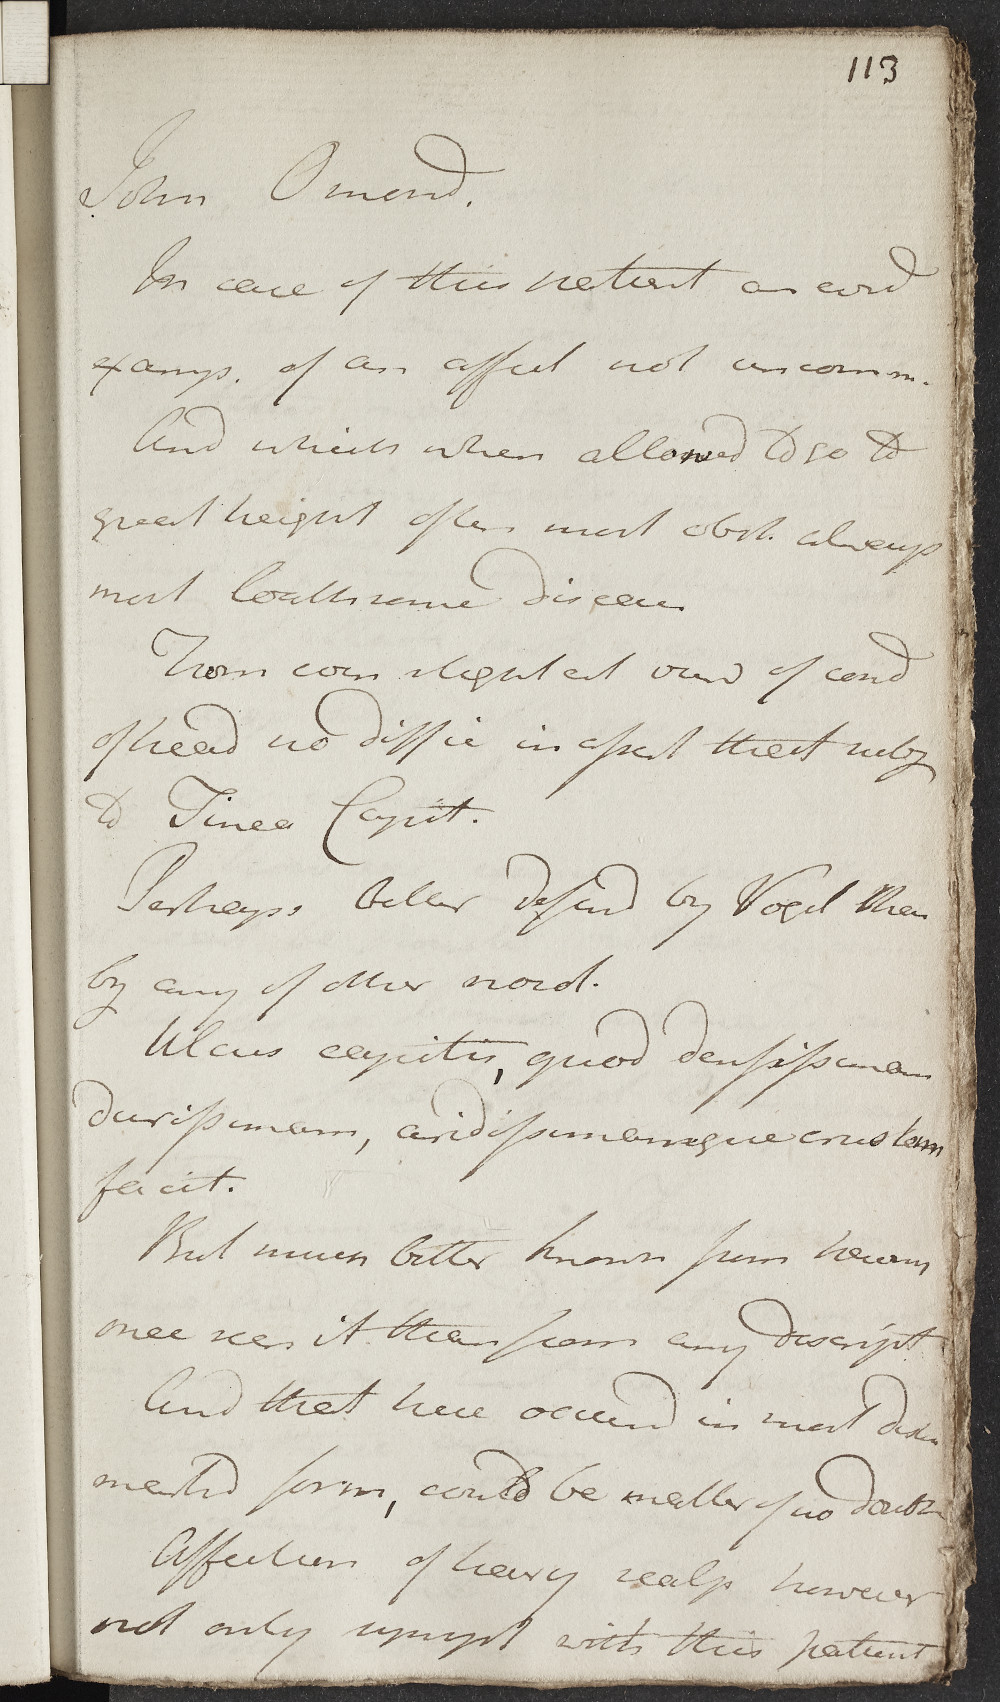 113
John Omond.
In case of this patient an evid
examp. of an affect not uncomm.
And which when allowed to go to
great height often most obst. always
most loathsome disease
From even slightest view of cond
of head no diffic in that
to Tinea Capit.
Perhaps better defind by Vogel than
by any of other nosol.
Ulcus capitis, quod densissimam
durissimam, aridissimamque crustam
facit.
But much better known from having
once seen it than from any descript
And that here occurrd in most distin
marked form, could be matter of no doubt
Affection of hairy scalp however
not only sympt with this patient